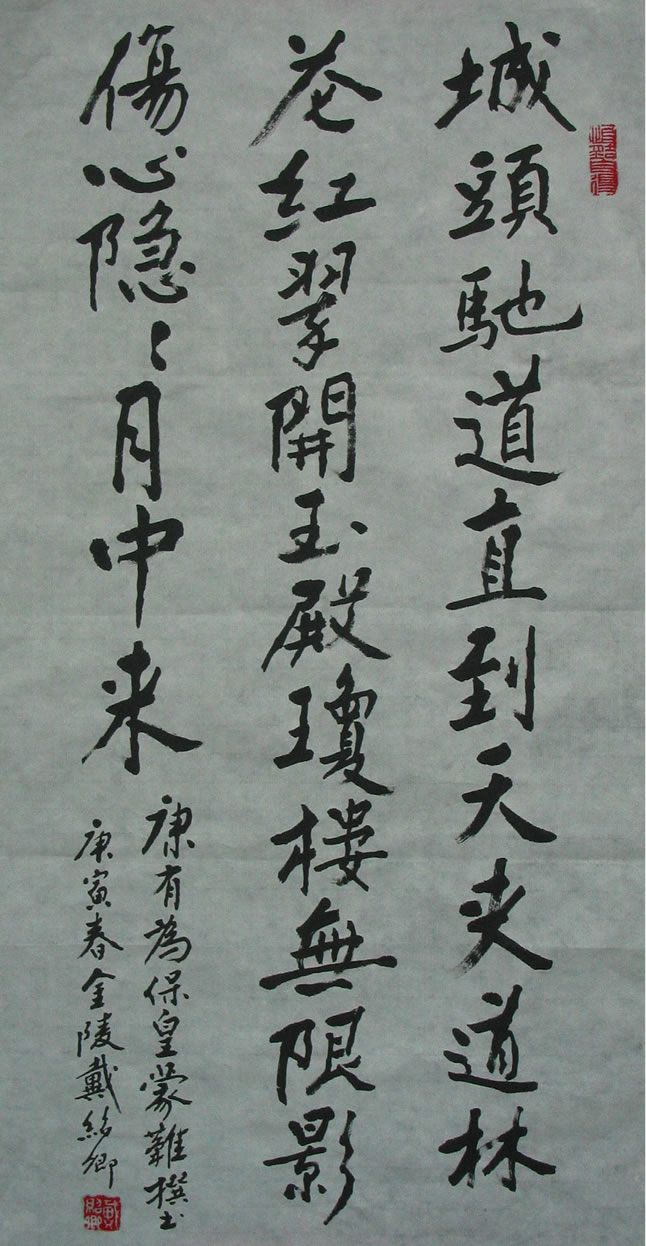 城頭馳道直到天夾道林
花红翠開玉殿瓊樓無限影
傷心隐〻月中来
康有為保皇蒙難撰书
庚寅春金陵戴紹卿